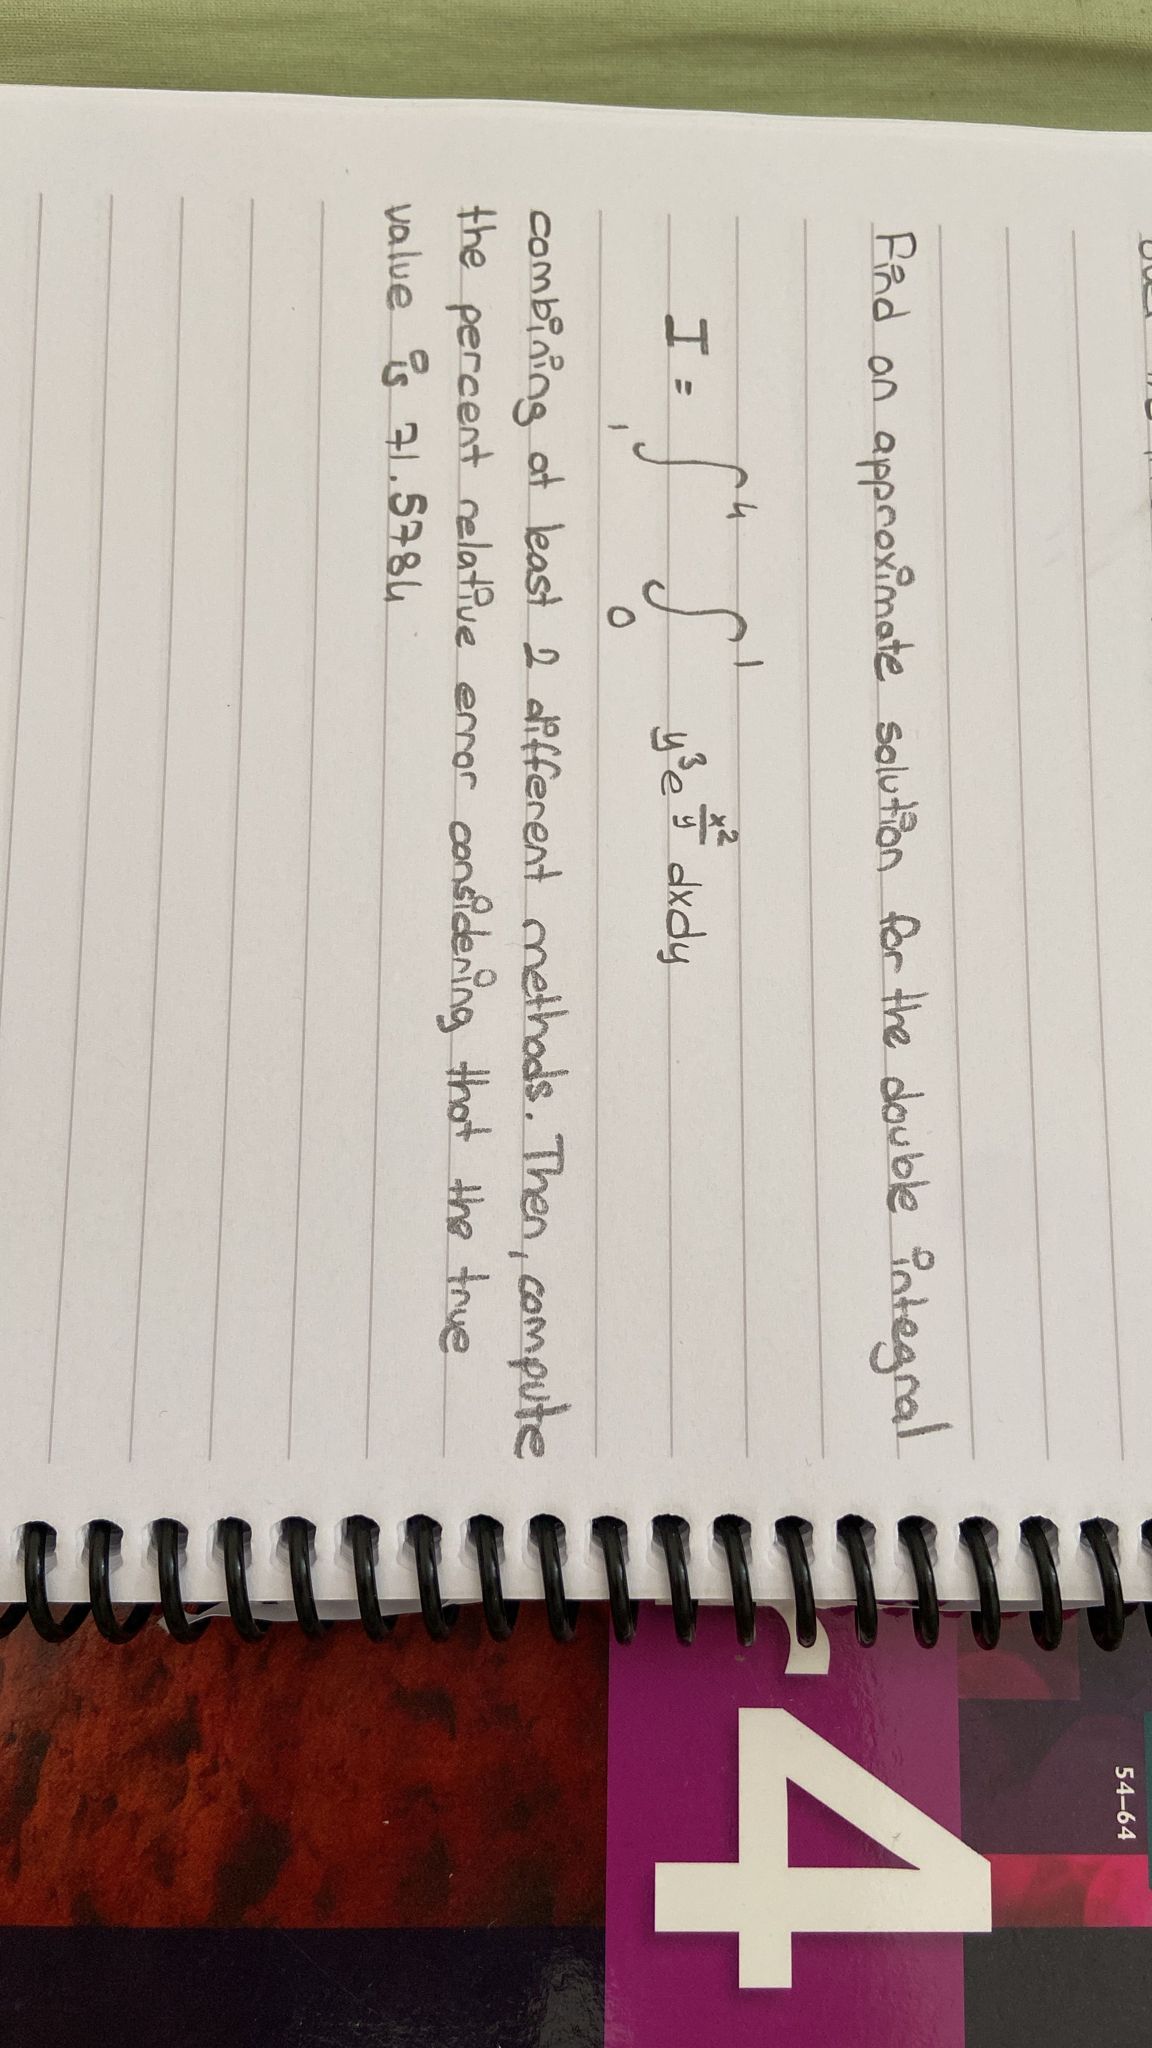 Find an approximate solution for the double integral
I = ∫₁⁴ ∫₀¹ y³e^(x²/y) dxdy
combining at least 2 different methods. Then, compute
the percent relative error considering that the true
value is 71.5784
4
54-64